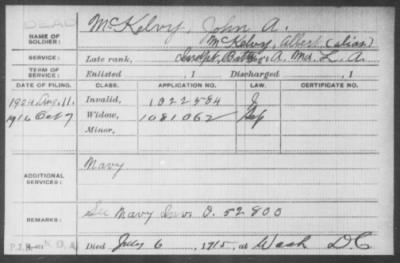 DEAD
NAME OF SOLDIER: McKelvy, John A.
McKelvy, Albert (alias)
SERVICE: Late rank, Indpt. Batt'y A. Md. L. A.
TERM OF SERVICE: Enlisted , 1 Discharged , 1
DATE OF FILING. CLASS. APPLICATION NO. LAW. CERTIFICATE NO.
Aug. 11. Invalid, 1022584
1916 Oct 7 Widow, 1081062
Minor,
ADDITIONAL SERVICES: Navy
REMARKS: See Navy Inv. O. 52800
Died July 6, 1915, at Wash D.C.